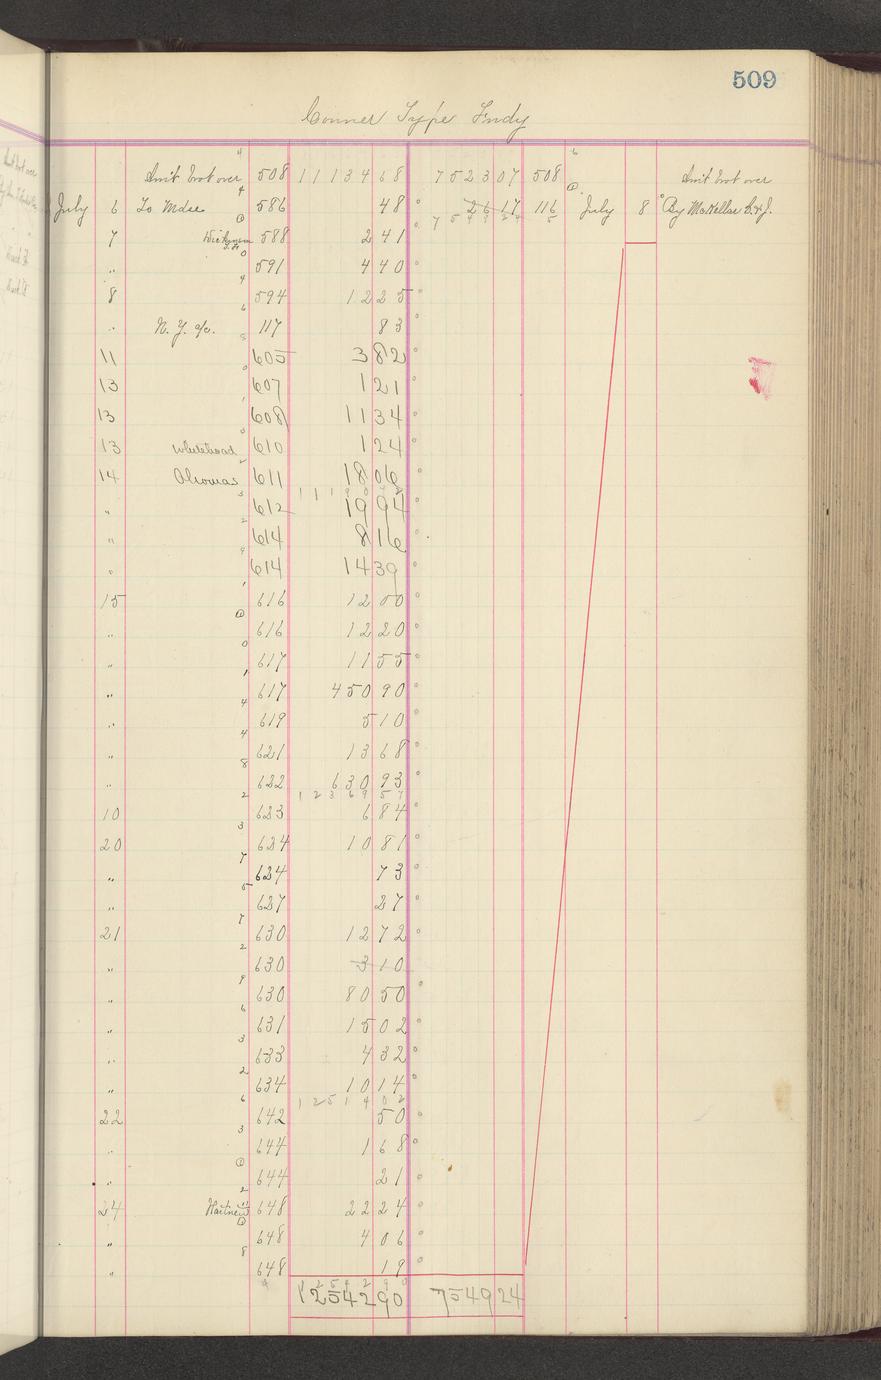 509
Conner Type Fndy
Amt brot over 508 1 1 1 3 4 6 8 7 5 2 3 0 7 508 Amt brot over
July 6 To Mdse 586 48 26 17 116 July 8 By McKellar S. & J.
7 588 2 41 7 5 4 9 2 4
" 591 4 40
8 594 12 25
" N. Y. a/c. 117 83
11 605 3 82
13 607 1 21
13 608 11 34
13 Whitehead 610 1 24
14 Thomas 611 18 06
1 1 1 9 0 7 2
" 612 19 94
" 614 8 16
" 614 14 39
15 616 12 00
" 616 12 20
" 617 11 55
" 617 450 90
" 619 5 10
" 621 13 68
" 622 630 93
1 2 3 6 9 5 7
10 623 6 84
20 624 10 81
" 624 73
" 627 27
21 630 12 72
" 630 3 10
" 630 80 50
" 631 15 02
" 633 4 32
" 634 10 14
1 2 5 1 4 0 2
22 642 50
" 644 1 68
" 644 21
24 648 22 24
" 648 4 06
" 648 19
1 2 5 4 2 9 0
1254290 754924